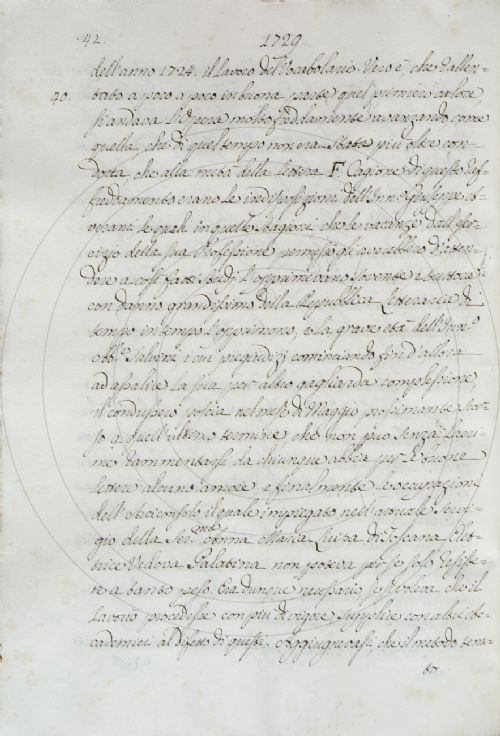 42.
1729.
dell'anno 1724. il lavoro del Vocabolario. Vero è, che rallen-
40.
tato a poco a poco in buona parte quel primiero calore
si andava l'Opera molto freddamente avanzando come
quella, che di quel tempo non era stata più oltre con-
dotta, che alla metà della lettera F. Cagione di questo raf-
freddamento erano le indisposizioni dell'Inno Giuseppe
le quali in quelle stagioni che le vacanze dall'eser-
cizio della sua Professione permesso gli averebbero d'atten-
dere a così fatti studj, l'opprimevano sovente e tuttora
con danno grandissimo della Repubblica Letteraria di
tempo in tempo l'opprimono, e la grave età dell'Inno
Abbe Salvini, i cui pregiudizj cominciando fin d'allora
ad assalire la sua per altro gagliarda complessione
il condussero poscia nel mese di Maggio prossimante scor-
so a quell'ultimo termine che non può senza lacri-
me rammentarsi da chiunque abbia per le buone
lettere alcuno amore e finalmente le occupazioni
dell'Arciconsolo il quale impiegato nell'attuale servi-
gio della Serma Donna Maria Luisa di Toscana Elet-
trice Vedova Palatina non poteva per se solo resiste-
re a tanto peso. Era dunque necessario, se si voleva che il
lavoro procedesse con più di vigore, supplire con altri Ac-
cademici al difetto di questi. Aggiugnevasi, che il metodo tenu-
to